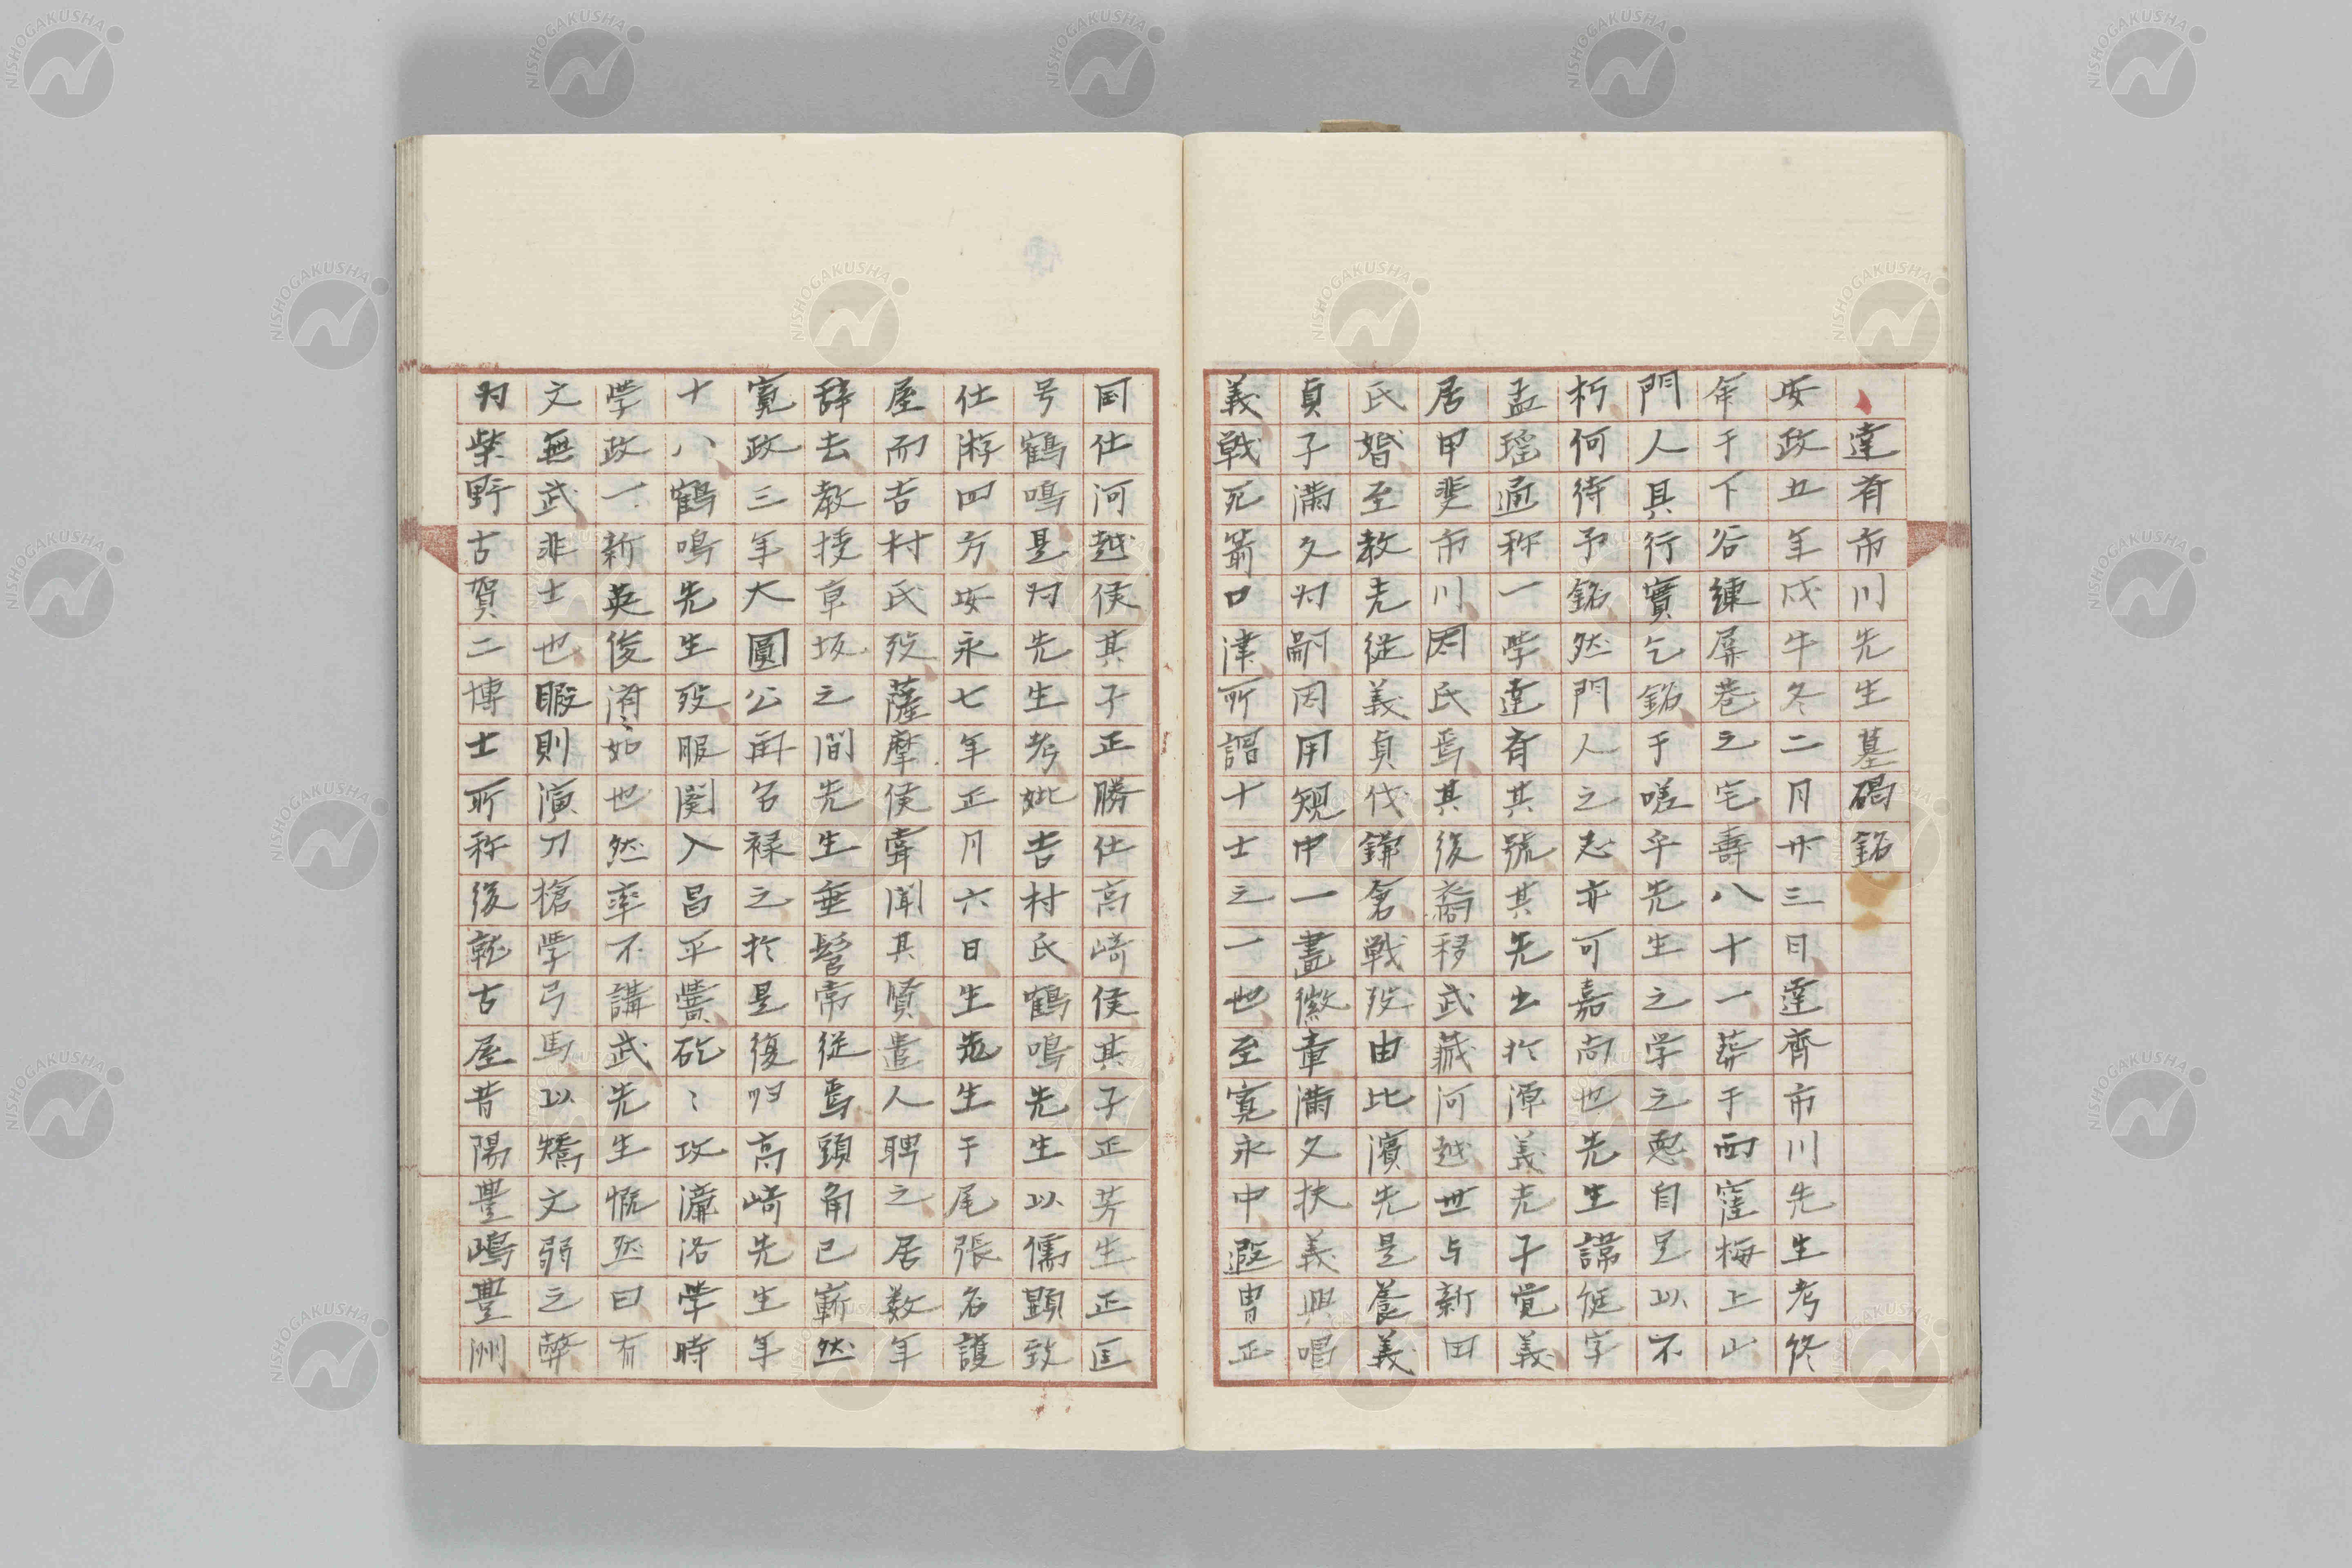 達斉市川先生墓碣銘
安政五年戊午冬二月廿三日達齊市川先生考終
年于下谷練屏巷之宅壽八十一葬于西窪梅上山
門人具行實乞銘于嗟乎先生之学之悳自足以不
朽何待予銘然門人之志亦可嘉尚也先生諱侹字
孟瑶通称一学達斉其號其先出於源義光子覚義
居甲斐市川因氏焉其後裔移武蔵河越世与新田
氏婚至教光従義貞伐鎌倉戦歿由比濱先是養義
貞子満久为嗣因用規中一畫徽章満久扶義興唱
義戦死箭口津所謂十士之一也至寛永中遐冑正
国仕河越侯其子正勝仕高崎侯其子正芳生正匡
号鶴鳴是为先生考妣吉村氏鶴鳴先生以儒顕致
仕游四方安永七年正月六日生先生于尾張名護
屋而吉村氏歿薩摩侯聿聞其賢遣人聘之居数年
辞去教授京坂之間先生垂髫常従焉頭角已嶄然
寛政三年大圓公再召禄之於是復归高崎先生年
十八鶴鳴先生歿服闋入昌平黌矻〻攻濂洛学時
学政一新英俊済〻如也然率不講武先生慨然曰有
文無武非士也暇則演刀槍学弓馬以矯文弱之弊
为柴野古賀二博士所称後就古屋昔陽豊嶋豊洲